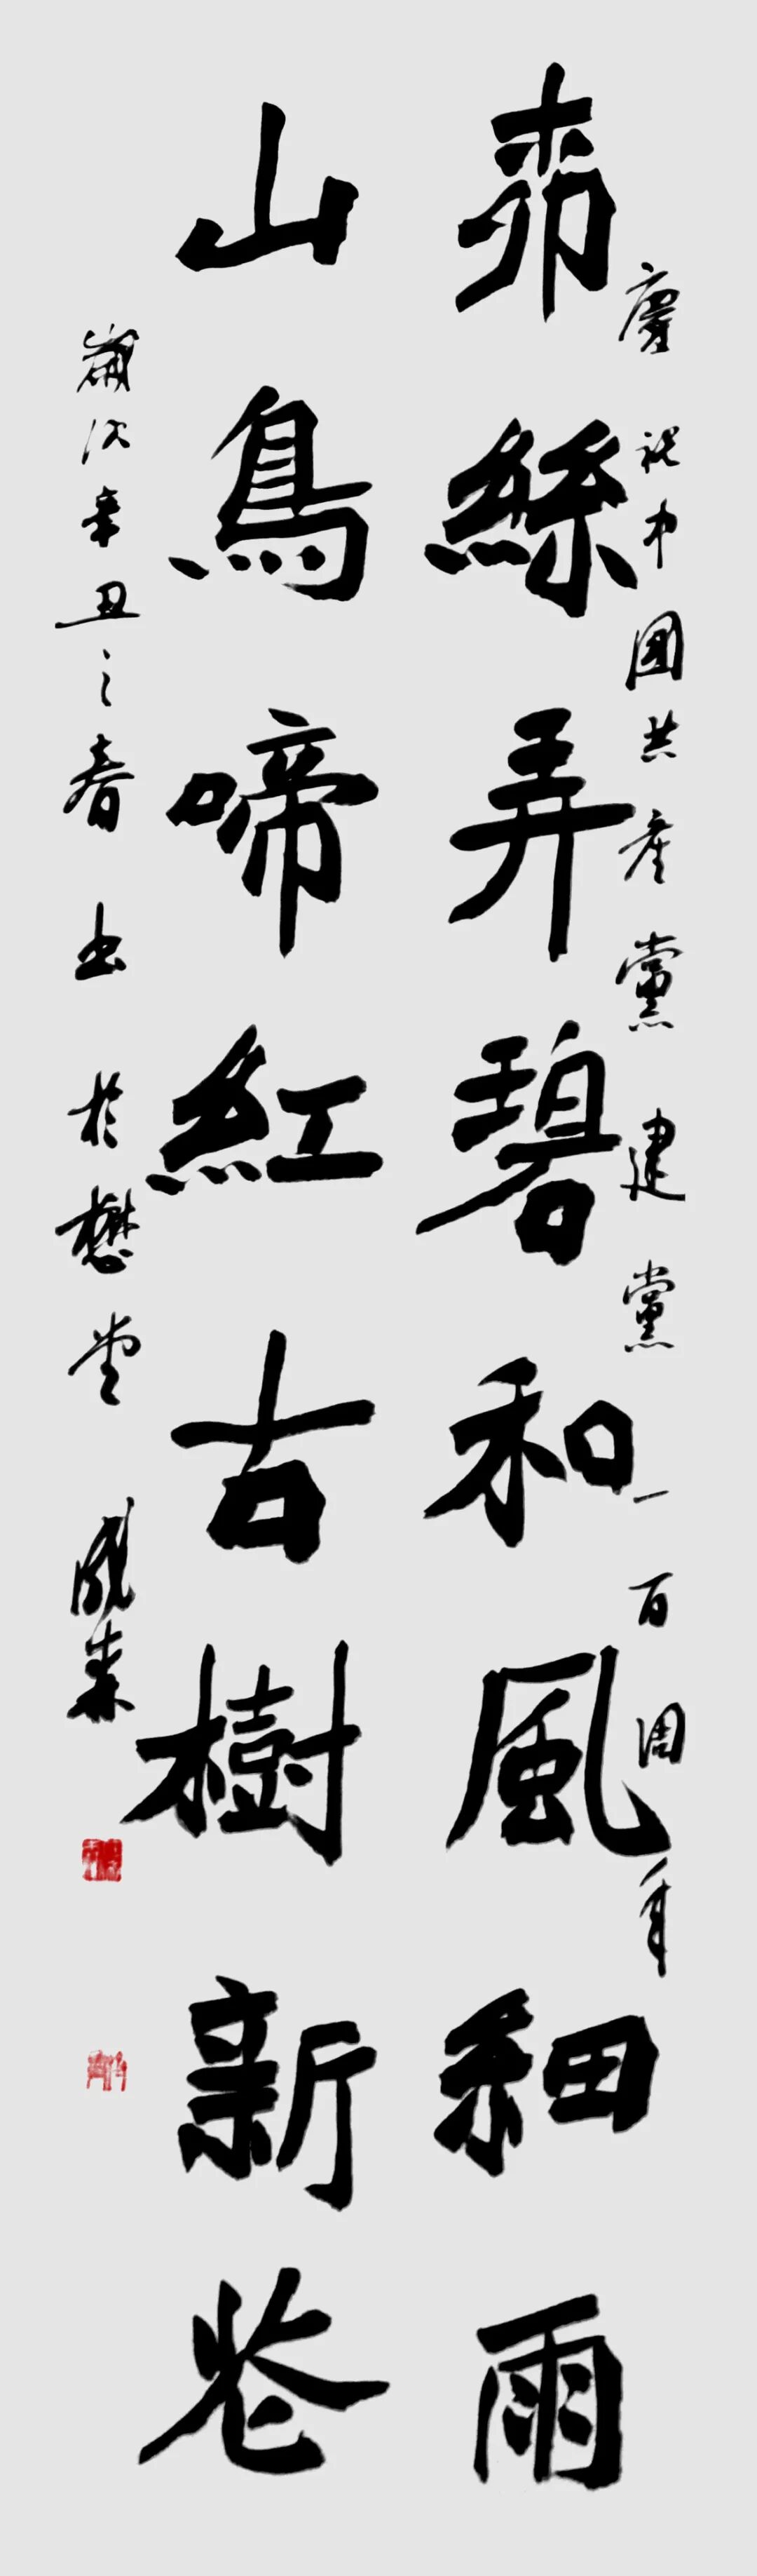 慶祝中國共產黨建黨一百周年
桺絲弄碧和風細雨
山鳥啼紅古樹新花
歲次辛丑之春書於懋堂 曉森